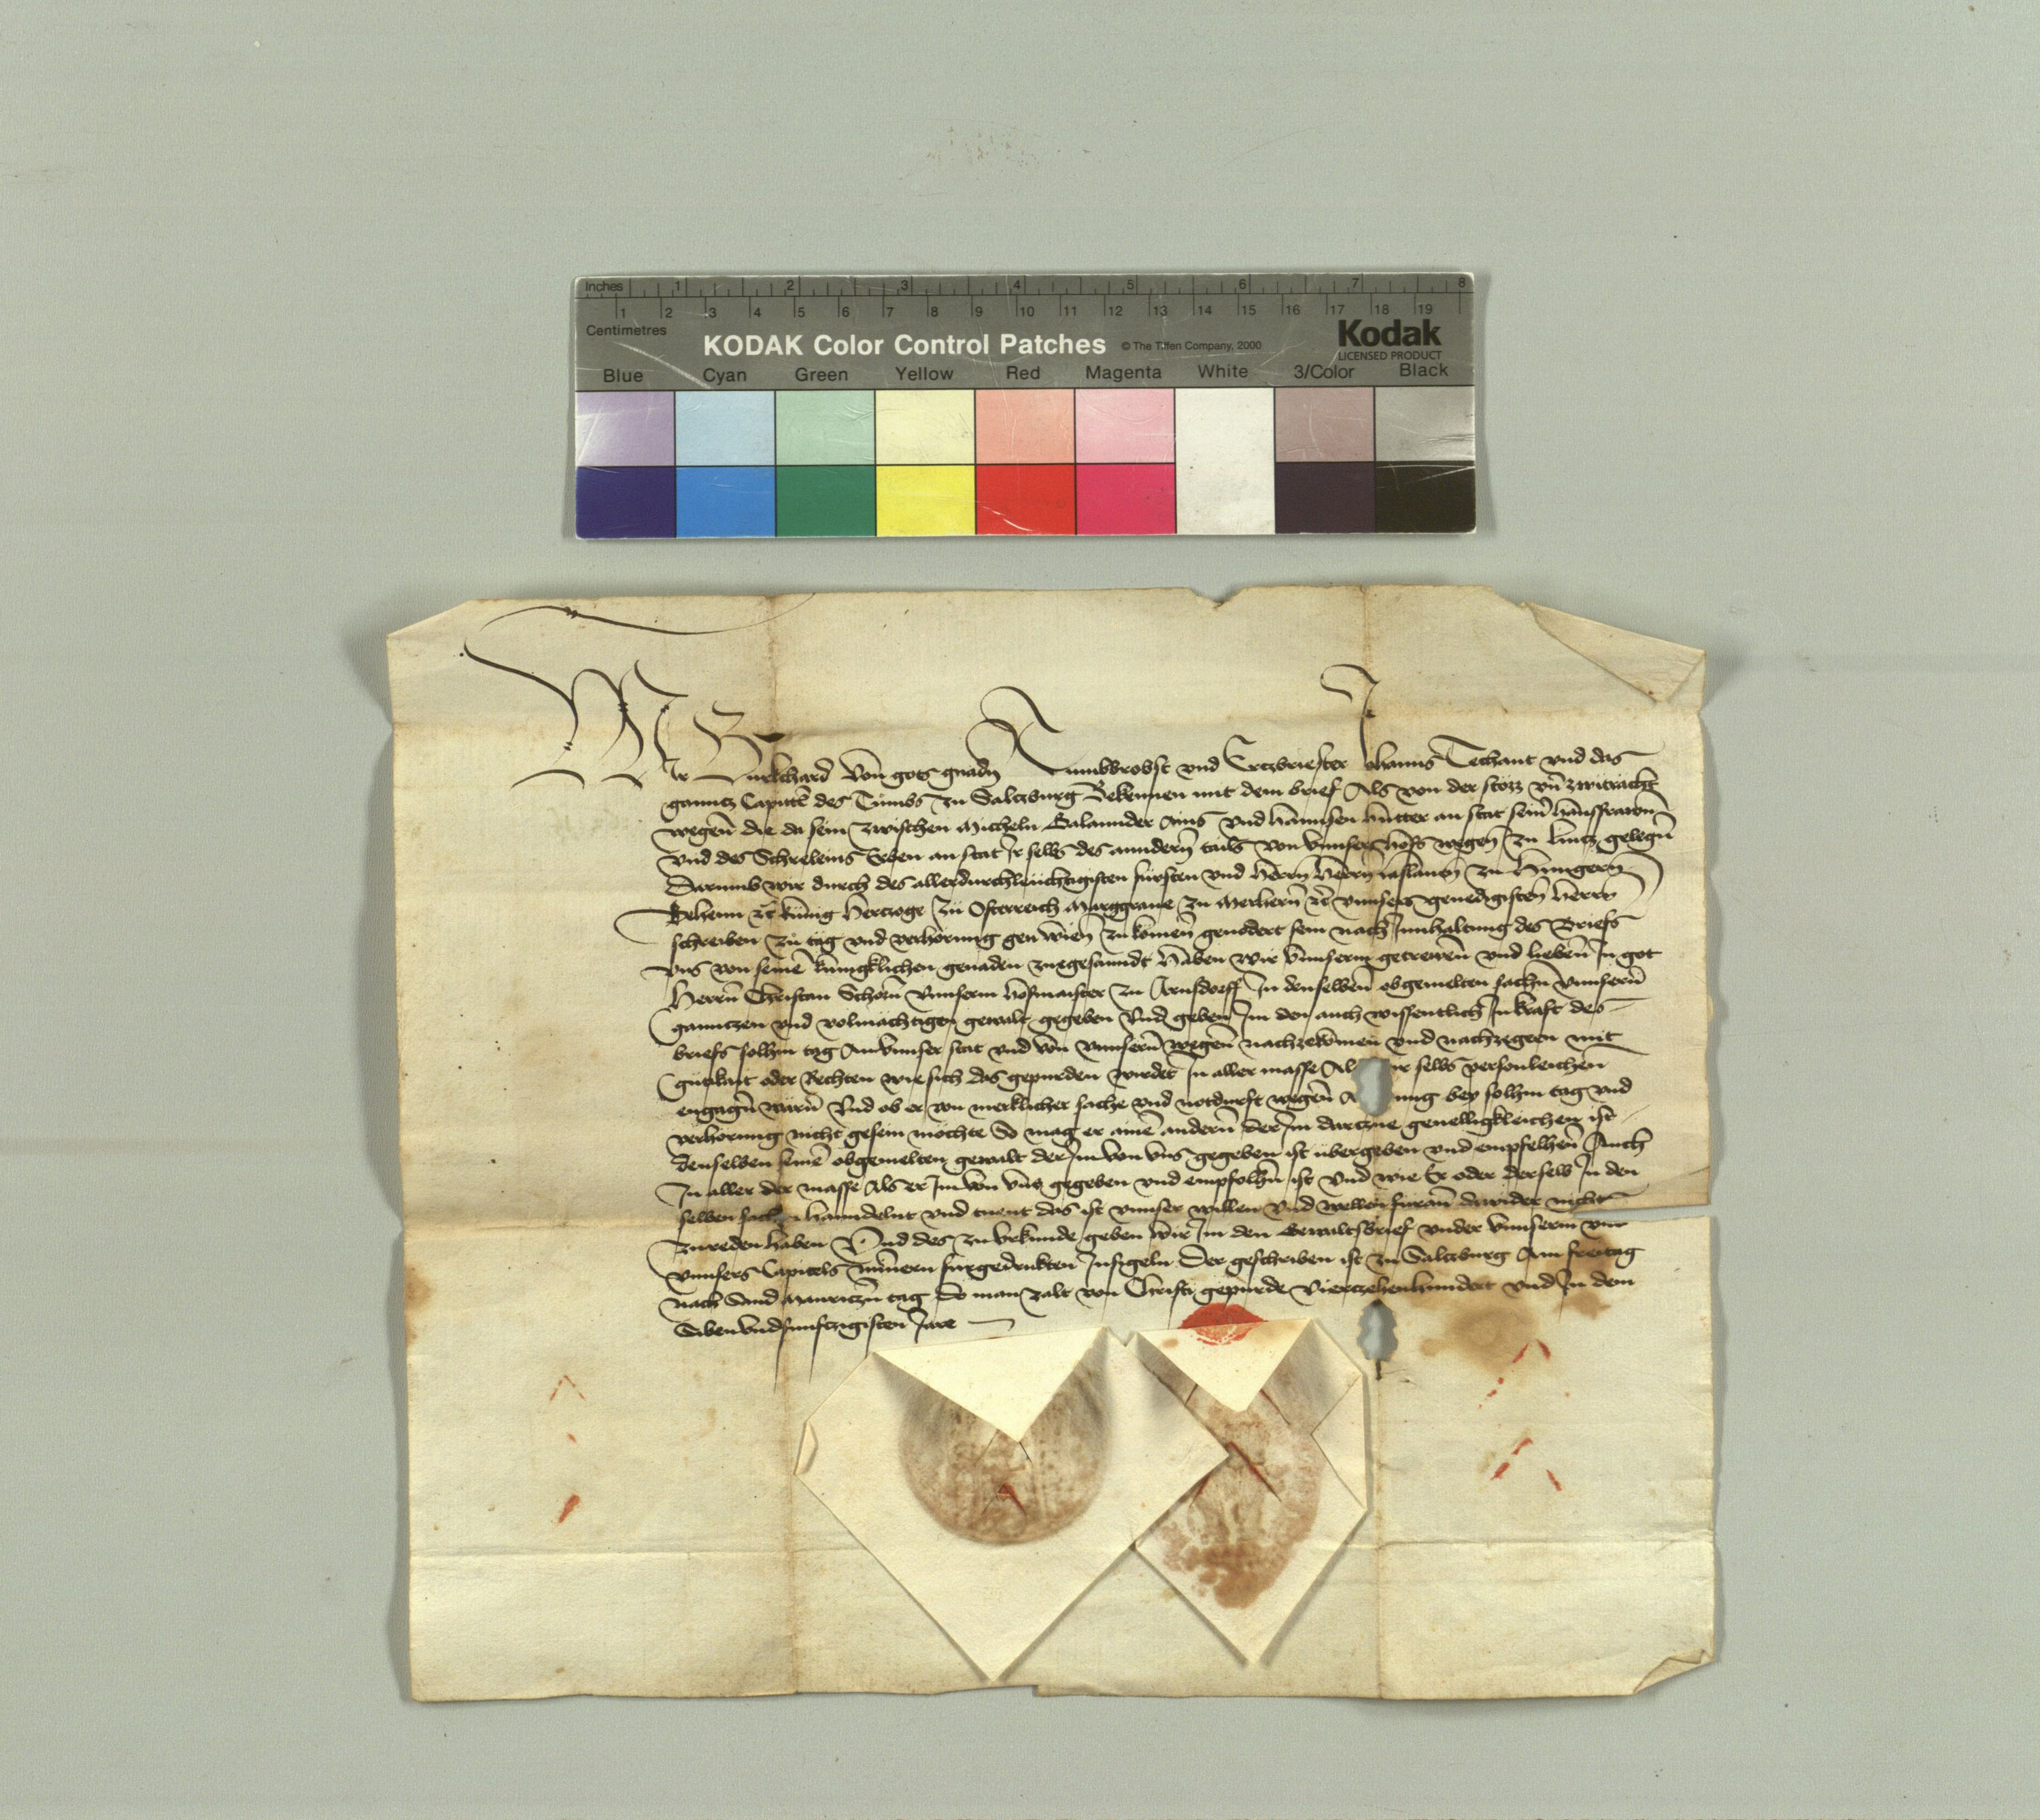 Inches 1 2 3 4 5 6 7 8
1 2 3 4 5 6 7 8 9 10 11 12 13 14 15 16 17 18 19
Centimetres
KODAK Color Control Patches © The Tiffen Company, 2000 Kodak
LICENSED PRODUCT
Blue Cyan Green Yellow Red Magenta White 3/Color Black
Wir Burkchard von gots gnadn Tumbbrobst vnd Ertzbriester Johanns Techant vnd das
ganntz Capitel des Tumbs zu Saltzburg Bekennen mit dem brief Als von der stözz vnd zwitrécht
wegen die da sein zwischen Micheln ains vnd Hannsen Hutter an stat seinr hausfrawn
vnd des Erben an stat Ir selbs des anndern tails von vnnsers hofs wegen zu gelegn
Darumb wir durch des allerdurchleüchtigisten fürsten vnd herrn herrn laslawen zu Hungern
Behem etc künig Hertzoge zu Osterreich Marggraue zu Merhern etc vnnsers genedigisten herrn
schreiben zu tag vnd verhörung gen wienn zukomen geuodert sein nach Innhaltung des Briefs
vns von seinen künigklichen genaden zuegesanndt Haben wir vnnserm getrewen vnd lieben In got
Herrn Cristan vnnserm hofmaister zu Arnsdorff In denselben obgemelten sachn vnnsern
ganntzen vnd volmächtigen gewalt gegeben Vnd geben Im den auch wissentlich In kraft des
briefs solhm tag An vnnser stat vnd von vnnsern wegen nachzekomen vnd nachzegeen mit
gütikait oder Rechten wie sich das gepurden wirdet In aller masse Als wir selbs personleichen
engagn wärn Vnd ob er von merklicher sache vnd notdurft wegen bey solhm tag vnd
verhorung nicht gesein möchte So mag er ainen andern der Im dartzue geuelligkleichen ist
denselben seinen obgemelten gewalt der Im von vns gegeben ist übergeben vnd empfelhen Auch
In aller der masse Als er Im von vns gegeben vnd empfolhn ist Vnd wie Er oder derselb In den
selben sachen hanndelnt vnd tuent das ist vnnser willen Vnd wellen furan dawider nicht
zureden haben Vnd des zu Vrkunde geben wir Im den Gewaltsbrief vnder vnnserm vnd
vnnsers Capitels mynnern furgedrukten Insigeln Der geschriben ist zu Saltzburg Am freitag
nach Sand Mauritzn tag Do man zalt von Christi gepurde Viertzehenhundert vnd In dem
Siben vnd funftzigisten Jare